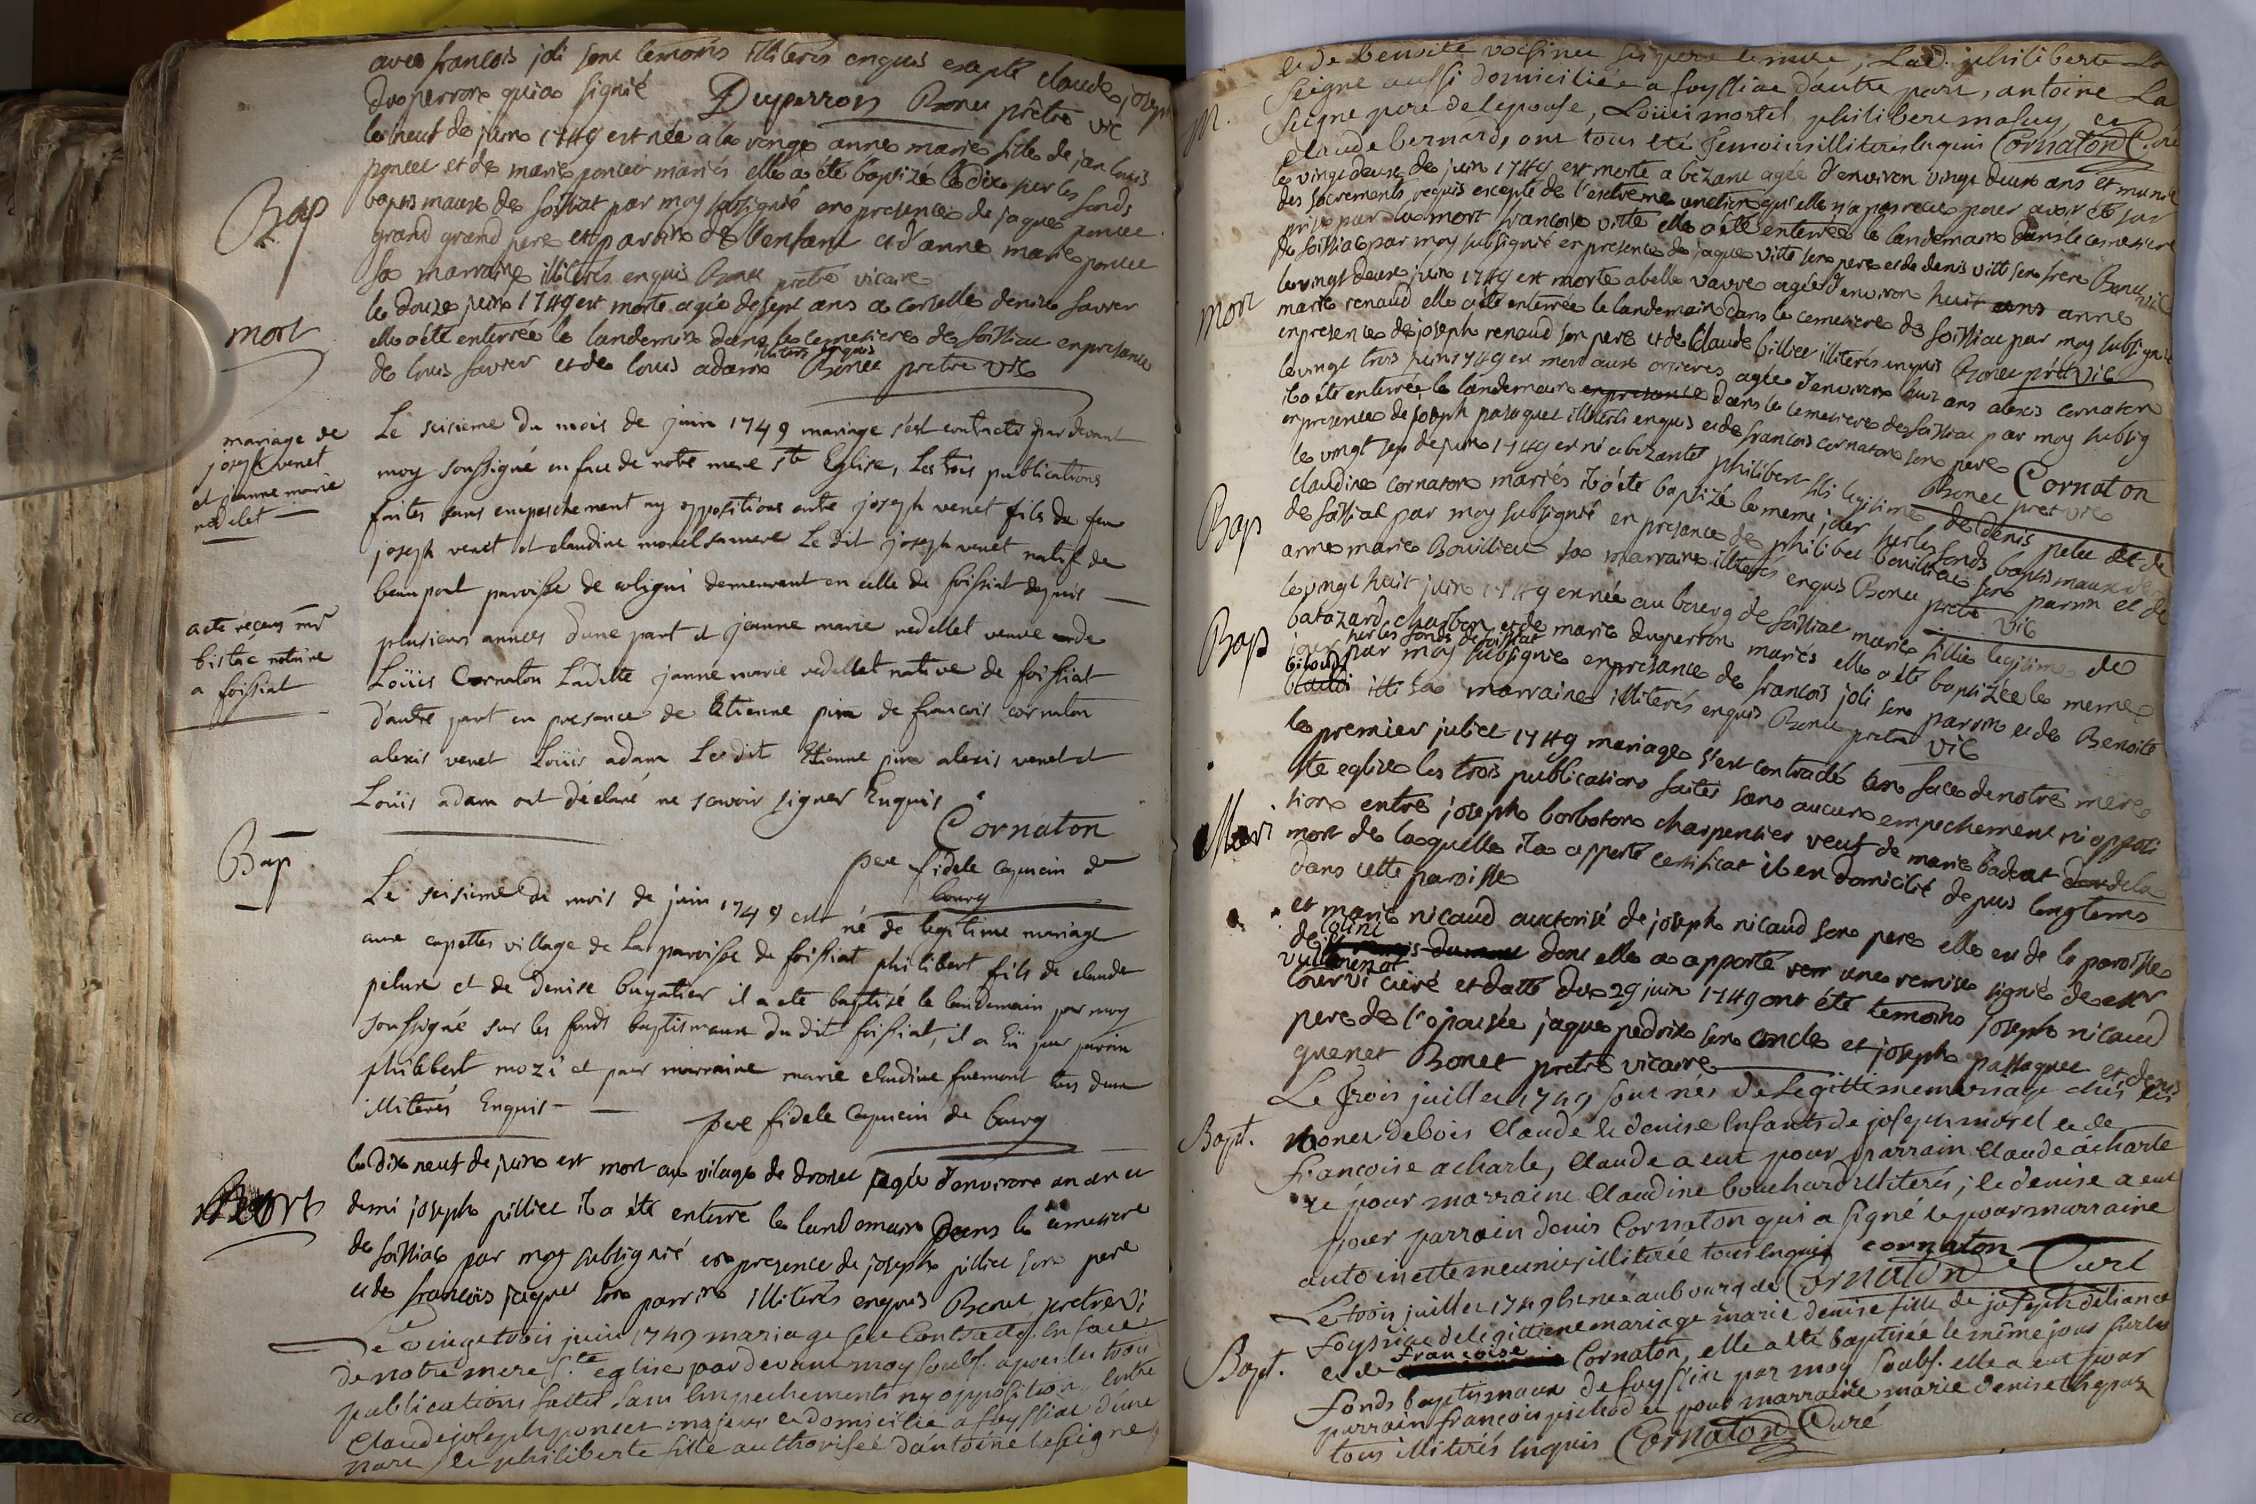 avec francois joli son temoins illiterés enquis excepté claude joseph
duperron qui a signé Duperron Bonet prêtre vic
le neuf de juin 1749 est née a la verge anne marie fille de jan louis
poncet et de marie poncet mariés elle a été baptizé le dix sur les fonds
baptismaux de foissiat par moy subsigné en presence de jaques poncet
grand grand pere et parrin de l'enfant et d'anne marie poncet
sa marraine illiterés enquis Bonet pretre vicaire
Bap
le douze juin 1749 est morte agée de sept ans a corcelle denise favier
elle a été enterrée le landemin dans le cemetiere de foissiat en presance
de louis favier et de louis adam illiterés enquis Bonet pretre vic
mort
mariage de
joseph venet
et jeanne marie
nedelet
Le seisieme du mois de juin 1749 mariage s'est contracté par devant
moy soussigné en face de notre mere ste Eglise, Les trois publications
faites sans empeschement ny oppositions entre joseph venet fils de feu
joseph venet et claudine morel sa mere Le dit joseph venet natif de
beaupont paroisse de coligni demeurant en celle de foissiat depuis
plusieurs années d'une part et jeanne marie nedellet veuve de
Loüis Cornaton Laditte janne marie nedellet native de foissiat
d'autre part en presence de Etienne piron de francois cornaton
alexis venet Loüis adam Le dit Etienne piron alexis venet et
Loüis adam ont déclaré ne scavoir signer Enquis
acte receu mr
bistac notaire
a foissiat
Cornaton
pere fidele Capucin de
bourg
Bap
Le seisieme du mois de juin 1749 est né de legitime mariage
aux capettes village de La paroisse de foissiat philibert fils de claude
pelux et de denise buyatier il a eté baptisé le landemain par moy
soussigné sur les fonds baptismaux du dit foissiat, il a Eü pour parrin
philibert mozi et pour marraine marie claudine fremont tous deux
illiterés Enquis
pere fidele Capucin de bourg
Mort
le dix neuf de juin est mort au vilage de dronet agée d'environ un an et
demi joseph pilliet il a été enterré le landemain dans le cimetiere
de foissiac par moy subsigné en presence de joseph pilliet son pere
et de francois jaquet son parrin illiterés enquis Bonet pretre vi
Le vingt trois juin 1749 mariage s'est Contracté En face
de notre mere s.te eglise par devant moy soubs. apres les trois
publications faites sans Empechements ny opposition, entre
Claude joseph poncet majeur et domicilié a foyssiac d'une
part, et philiberte fille authorisée d'antoine laseigne
et de benoite voisinet ses pere et mere, Lad. philiberte La
Seigne aussi domiciliée a foyssiac d'autre part, antoine La
Seigne pere de l'epouse, Loüis mortel philibert masuy, et
Claude bernard, ont tous eté Temoins illiterés Enquis Cornaton Curé
M.
le vingt deux de juin 1749 est morte a bezant agée d'environ vingt deux ans et munie
des sacrements requis excepté de l'extreme onction qu'elle n'a pas receue pour avoir eté sur
prise par la mort francoise vitte elle a été enterrée le landemain dans le cemetiere
de foissiac par moy subsigné en presence de jaque vitte son pere et de denis vitt son frere Bonet vic
le vingt deux juin 1749 est morte a belle vavre agée d'environ huit ans anne
marie renaud elle a été enterrée le landemain dans le cemetiere de foissiac par moy subsigné
en presence de joseph renaud son pere et de Claude billiet illiterés enquis Bonet prêt vic
Mort
le vingt trois juin 1749 est mort aux orcieres agée d'environ huit ans alexis cornaton
il a été enterrée le landemain en presance dans le cemetiere de foissiac par moy subsig
en presence de joseph pataquet illiterés enquis et de francois cornaton son pere Cornaton
Bonet pretre vic
le vingt sep de juin 1749 est né a bezantet philibert fils legitime de denis pelu et de
claudine cornaton mariés il a été baptizé le meme jour sur les fonds baptismaux
de foissiac par moy subsigné en presance de philibert bouillier son parrin et de
anne marie Bouillier sa marraine illiterés enquis Bonet pretre vic
Bap
le vingt huit juin 1749 est née au bourg de foissiac marie fillie legitime de
batazard charbon et de marie duperron mariés elle a été baptizée le meme
jour sur les fonds de foissiat par moy subsigné en presance de francois joli son parrin et de Benoite
bitoudi itti sa marraine illiterés enquis Bonet pretre vic
Bap
le premier juliet 1749 mariage s'est contracté en face de notre mere
ste eglise les trois publications faites sans aucun empechement ni opposi
tion entre joseph borboton charpentier veuf de marie badeat de la
mort de laquelle il a apporté certificat il en domicilié depuis longtems
dans cette paroisse
Mari
et marie nicaud auctorisé de joseph nicaud son pere elle est de la paroisse
de dont elle a apporté une remise signé de mr
curé et datté du 29 juin 1749 ont été temoins joseph nicaud
pere de l'epousée jaque pedrix son oncle et joseph passaquet et denis
guenet Bonet pretre vicaire
Le Trois juillet 1749 sont nés de Legitime mariage chés les
monet debois Claude et denise Enfants de joseph morel et de
francoise acharle, Claude a eut pour parrain Claude acharle
et pour marraine Claudine bouchard illiterés; et denise a eut
pour parrain denis Cornaton qui a signé et pour marraine
antoinette meunier illiterée tous Enquis cornaton
Cornaton Curé
Bapt.
Le trois juillet 1749 est née au bourg de
foyssiac de legitime mariage marie denise fille de joseph deliance
et de françoise Cornaton, elle a eté baptisée le même jour sur les
fonds baptismaux de foyssiac par moy soubs. elle a eut pour
parrain françois pichod et pour marraine marie denise thepaz
tous illiterés Enquis Cornaton Curé
Bapt.